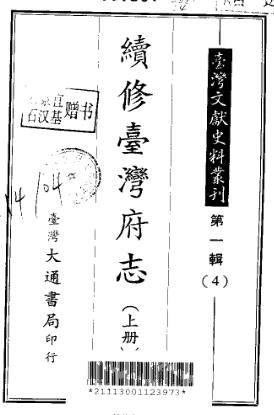 臺灣文獻史料叢刊
第一輯
(4)
續修臺灣府志
(上册)
石汉基赠书
104
14
臺灣大通書局印行
*21113001123973*